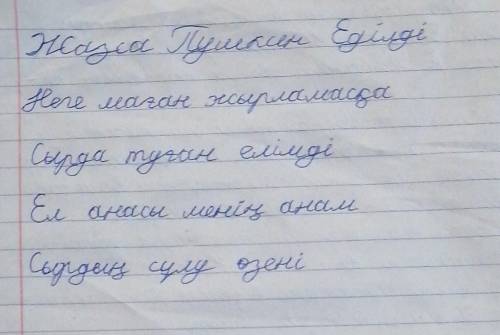 Жазса Пушкин Еділді
Неге маған жырламасқа
Сырда туған елімді
Ел анасы менің анам
Сырдың сұлу өзені